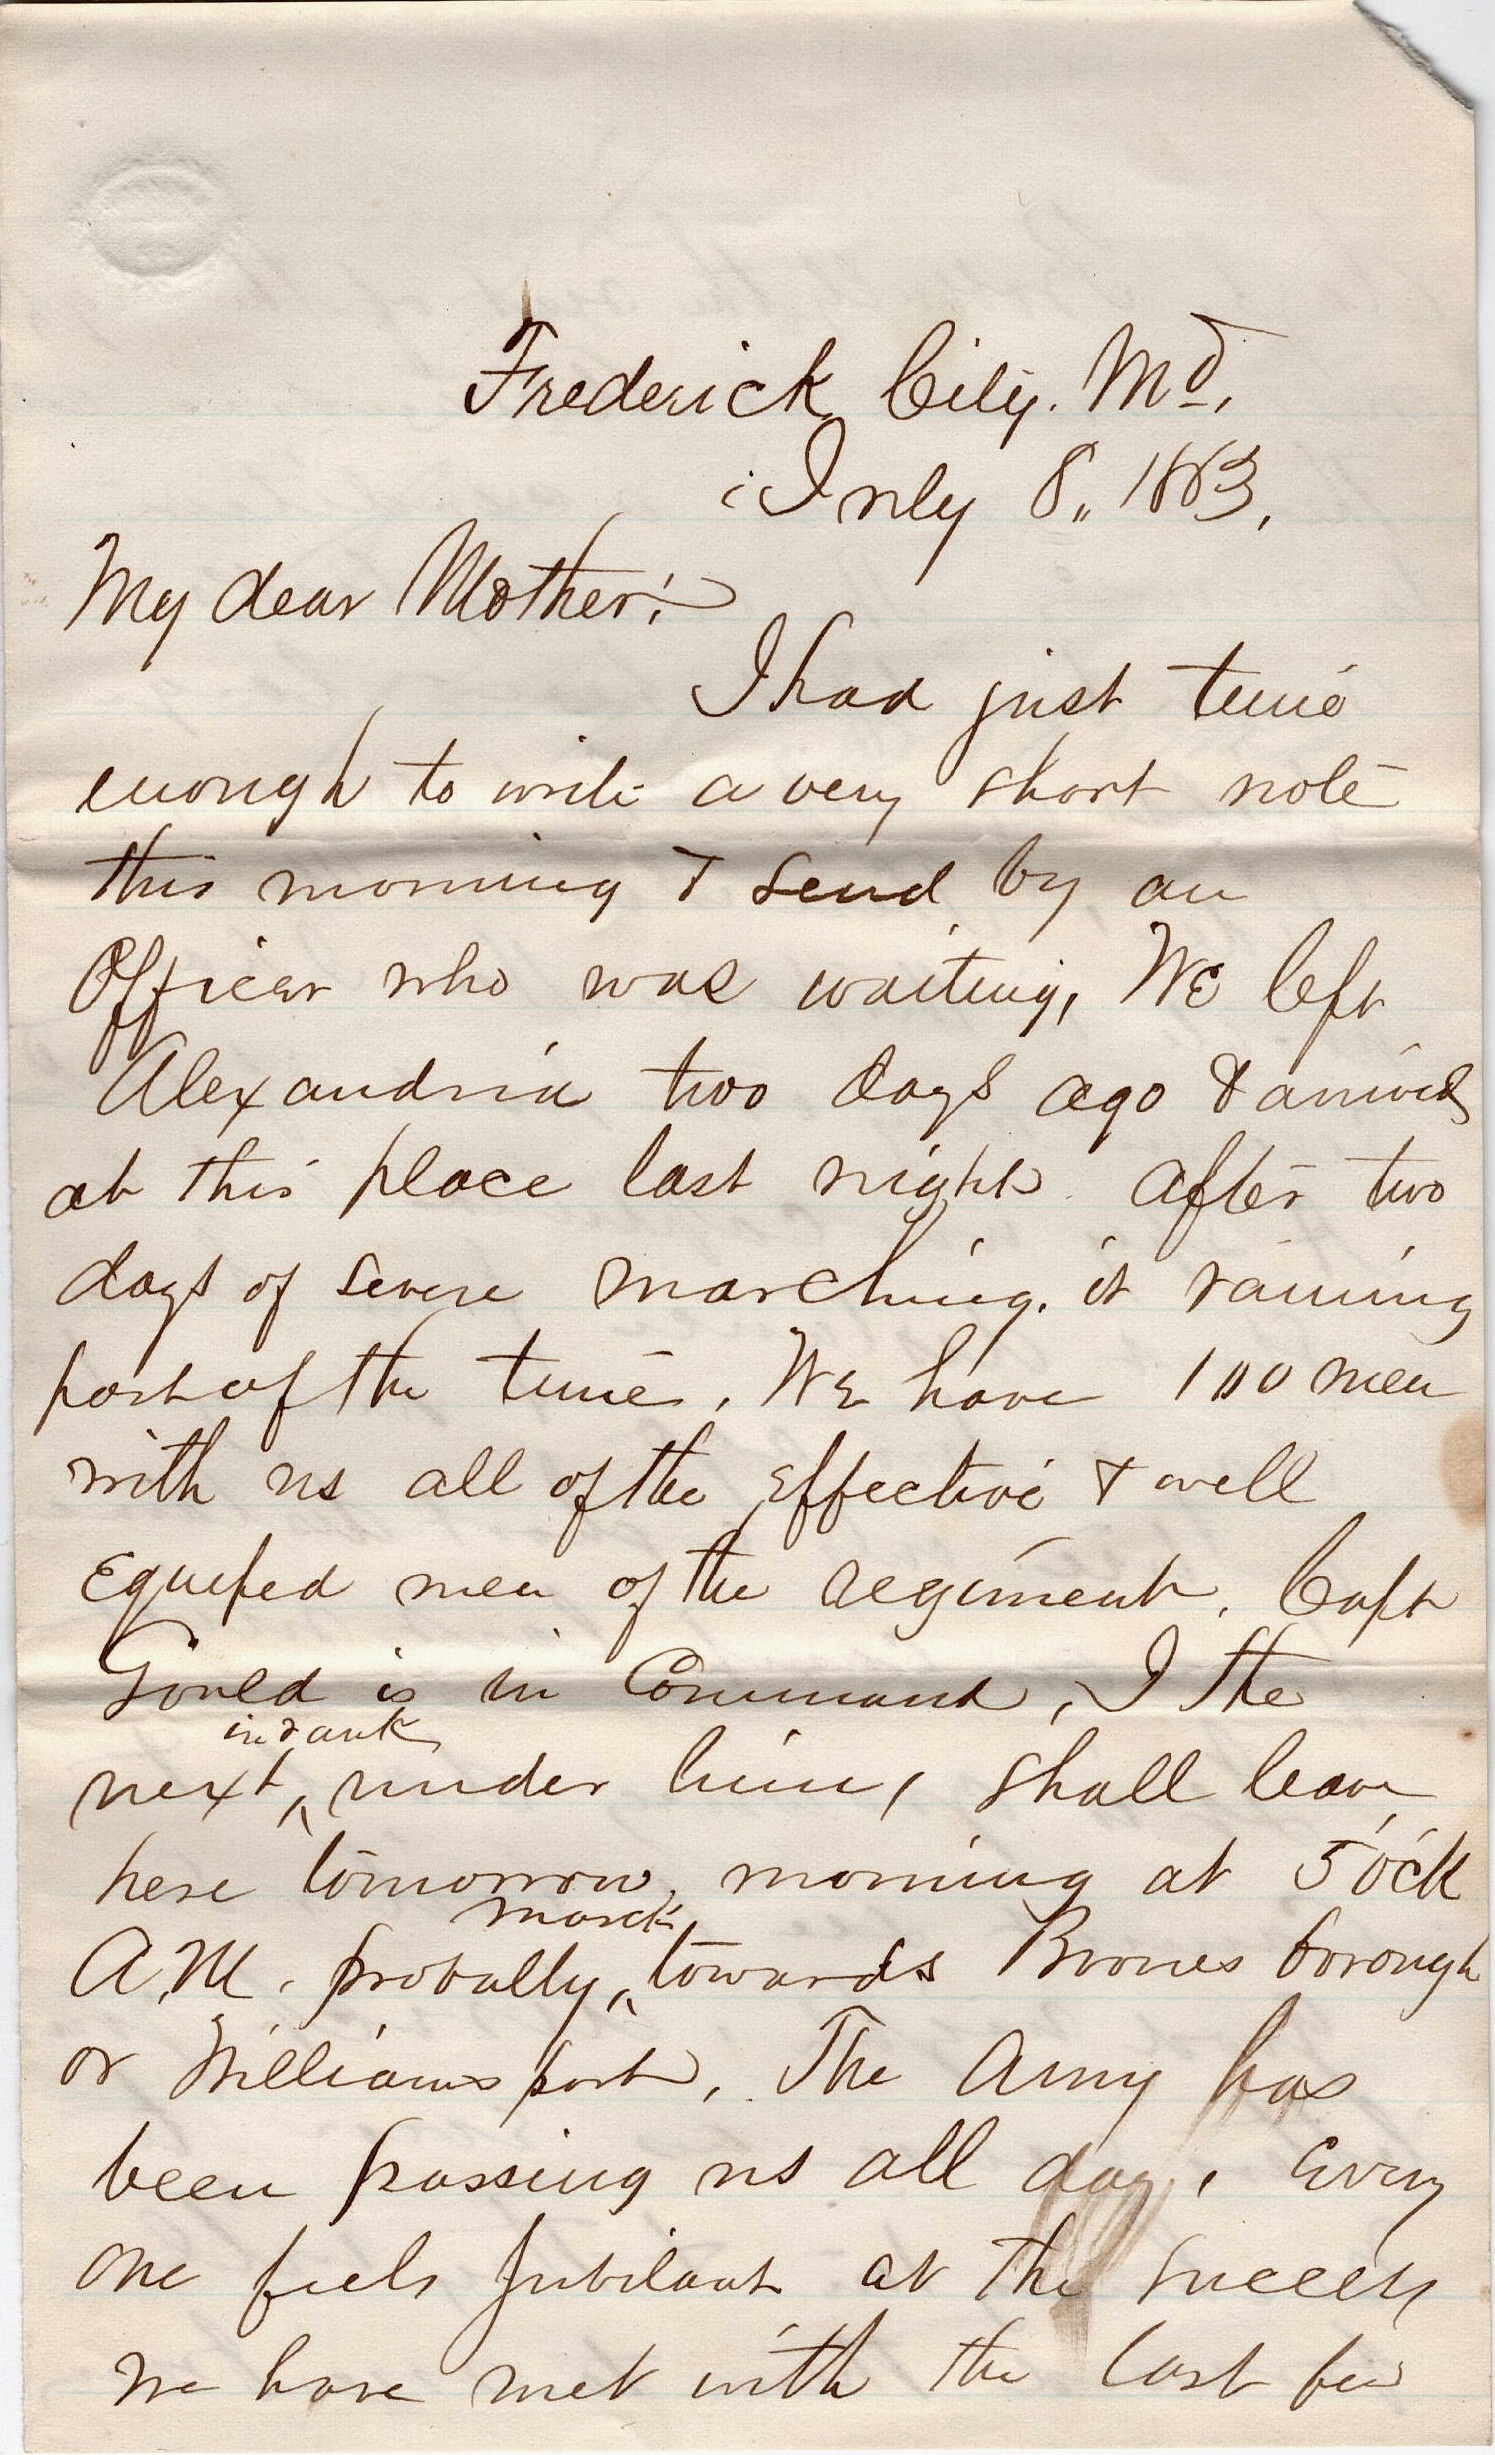 Frederick City. Md.
July 8,, 1863.
My dear Mother:
I had just time
enough to write a very short note
this morning & send by an
Officer who was waiting, We left
Alexandria two days ago & arrived
at this place last night. after two
days of severe marching. it raining
part of the time. We have 100 men
with us all of the effective & well
equiped men of the regiment. Capt
Gould is in Command, I the
in rank
next, under him, shall leave
here tomorrow morning at 5 o'ck
march
A.M. probally, towards Boones borough
or Williamsport. The Army has
been passing us all day, Every
one feels Jubilant at the success
we have met with the last few